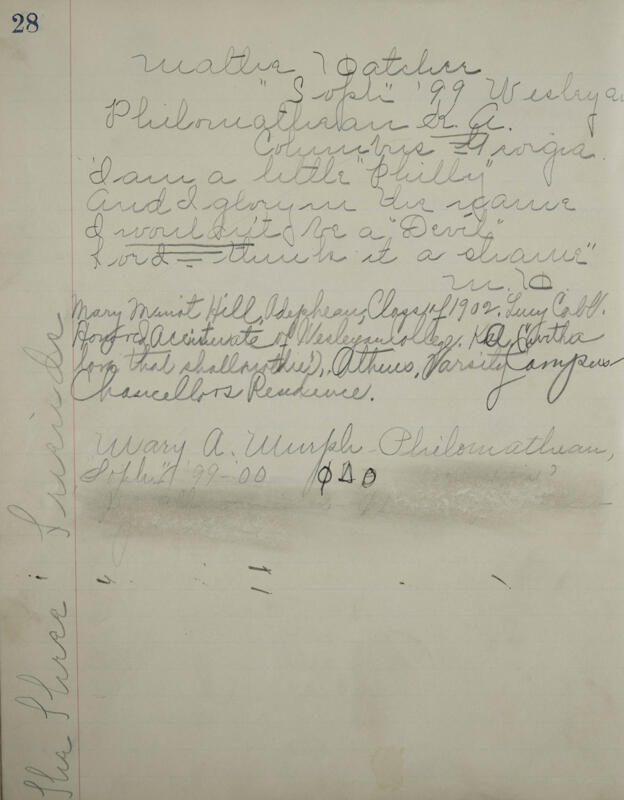 28
Mattie Hatcher
"Soph" '99 Wesleyan
Philomathean K. A.
Columbus Georgia.
"I am a little "Philly"
And I glory in the name
I wouldn't be a "Devil"
Lord — think it a shame"
M. H.
Mary Minot Hill, Adephean, Class of 1902. Lucy Cobb.
of Wesleyan College. KA
love that shall not die), Athens, Varsity Campus
Chancellors Residence.
Mary A. Murph - Philomathean,
"Soph" '99-'00 ΦΔΘ
The Three Friends